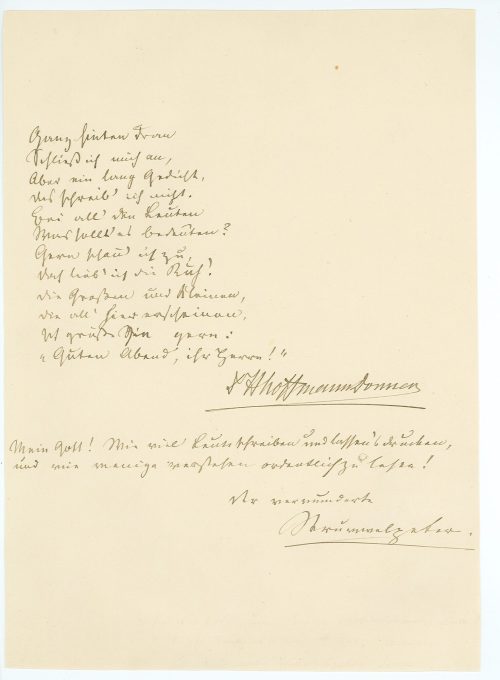 Ganz hinten dran
Schließ ich mich an,
Aber ein lang Gedicht,
Das schreib' ich nicht.
Bei all' den Leuten
Was sollt' es bedeuten?
Gern schau' ich zu,
Doch lieb' ich die Ruh'!
Die Großen und Kleinen,
Die all' hier erscheinen,
Ich grüße Sie gern:
"Guten Abend, ihr Herrn!"
Dr H Hoffmann Donner
Mein Gott! Wie viel Leute schreiben und lassen's drucken,
und wie wenige verstehen ordentlich zu lesen!
Der verwunderte
Struwwelpeter.